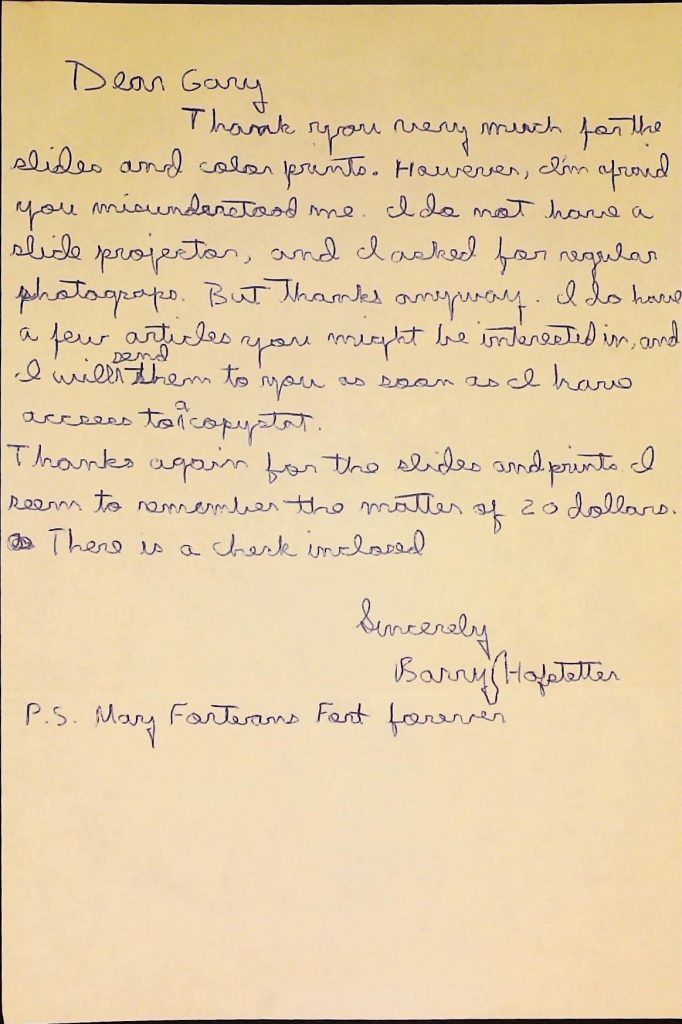 Dear Gary
Thank you very much for the
slides and color prints. However, I'm afraid
you misunderstood me. I do not have a
slide projector, and I asked for regular
photograps. But thanks anyway. I do have
a few articles you might be interested in, and
I will send them to you as soon as I have
access to a copystat.
Thanks again for the slides and prints. I
seem to remember the matter of 20 dollars.
There is a check inclosed
Sincerely
Barry Hofstetter
P.S. May Forteans Fort forever